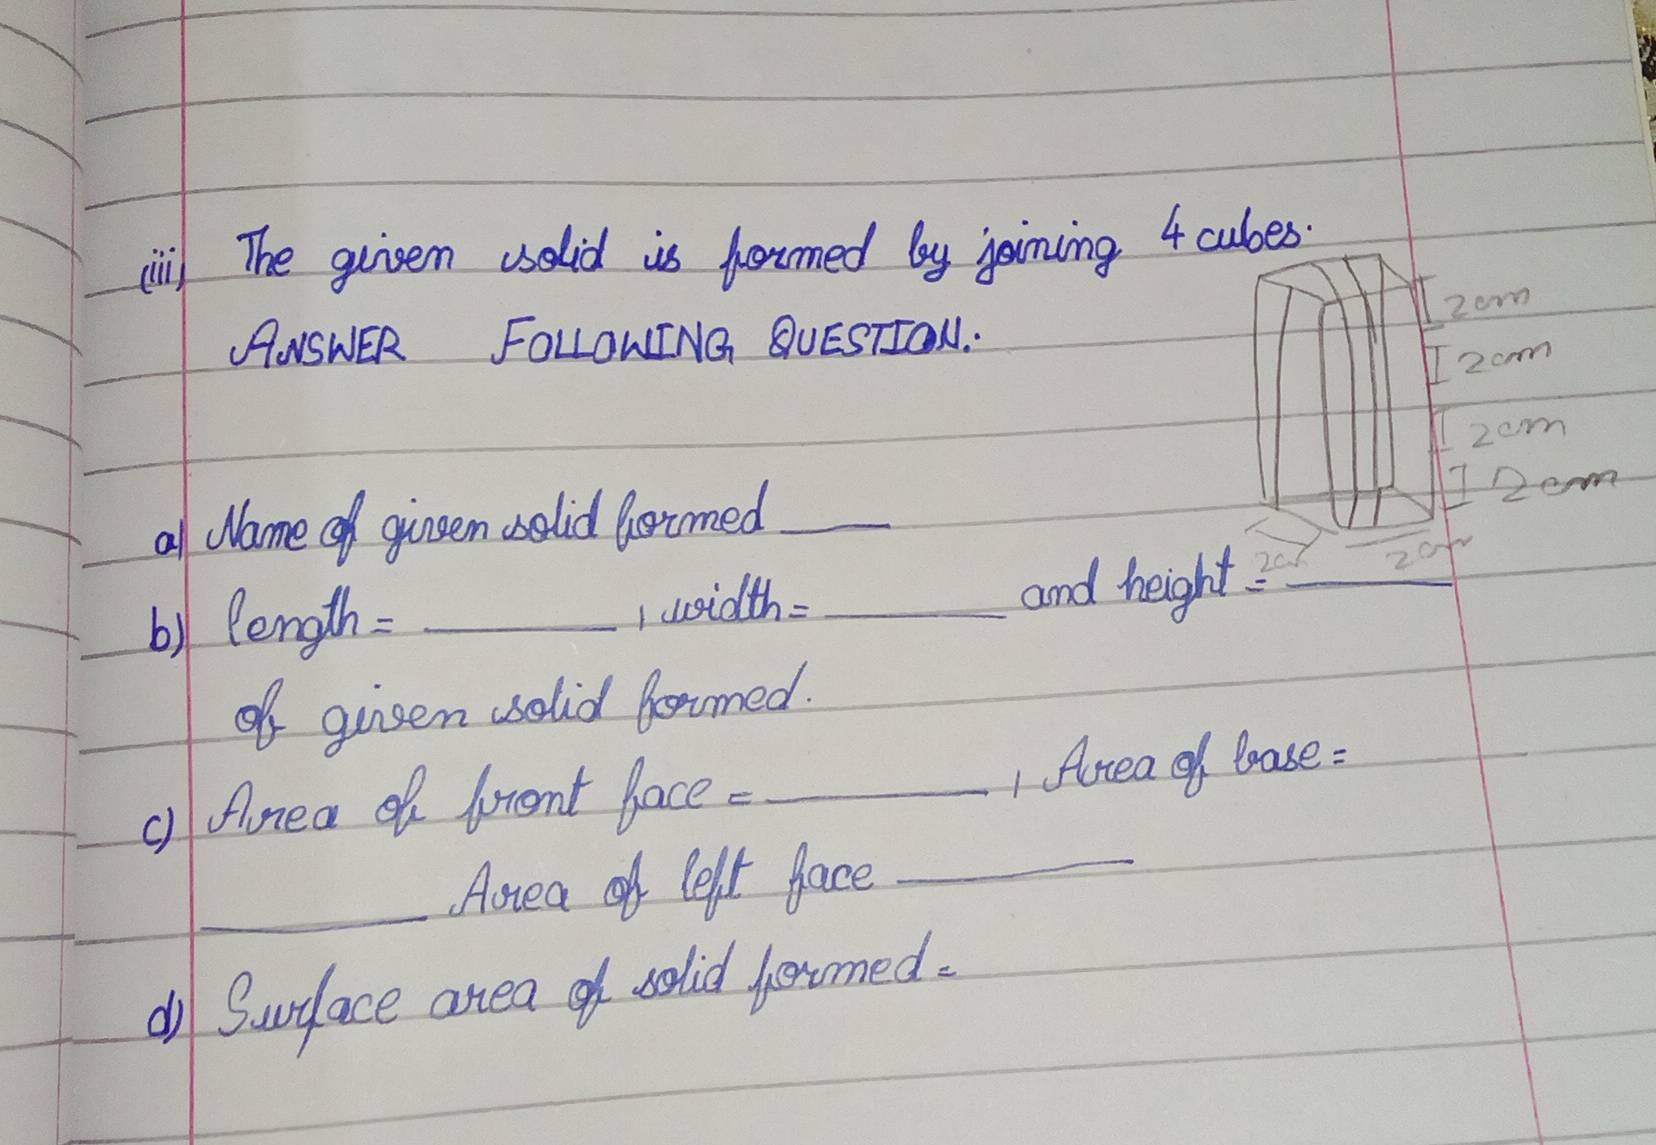 (iii) The given solid is formed by joining 4 cubes.
ANSWER FOLLOWING QUESTION.
2cm
2cm
2cm
2cm
a) Name of given solid formed
2cm 2cm
b) length = , width = and height =
of given solid formed.
c) Area of front face = , Area of base =
Area of left face
d) Surface area of solid formed =